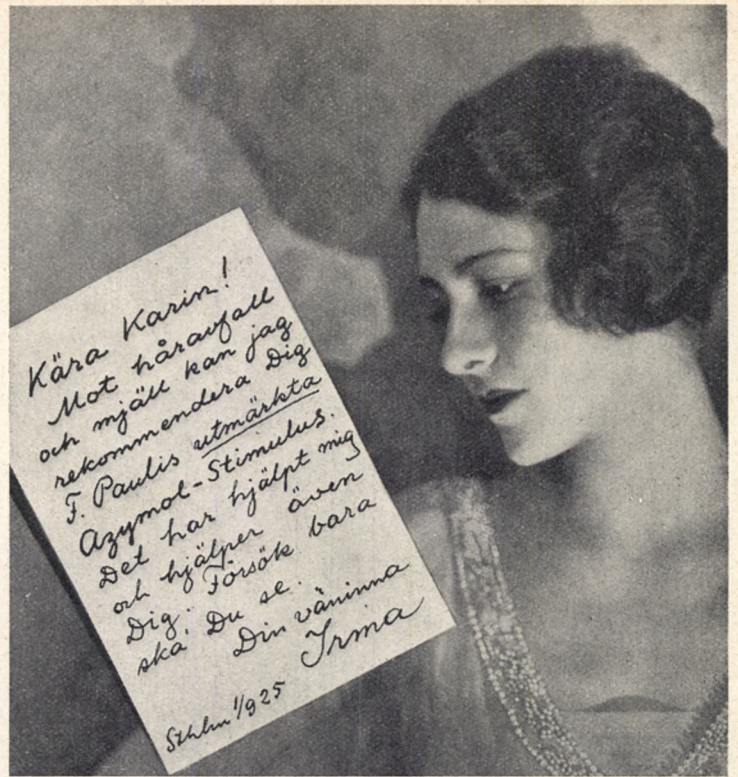 Kära Karin!
Mot håravfall
och mjäll kan jag
rekommendera Dig
F. Paulis utmärkta
Azymol-Stimulus.
Det har hjälpt mig
och hjälper även
Dig. Försök bara
ska' Du se.
Din väninna
Irma
Sthlm 1/9 25